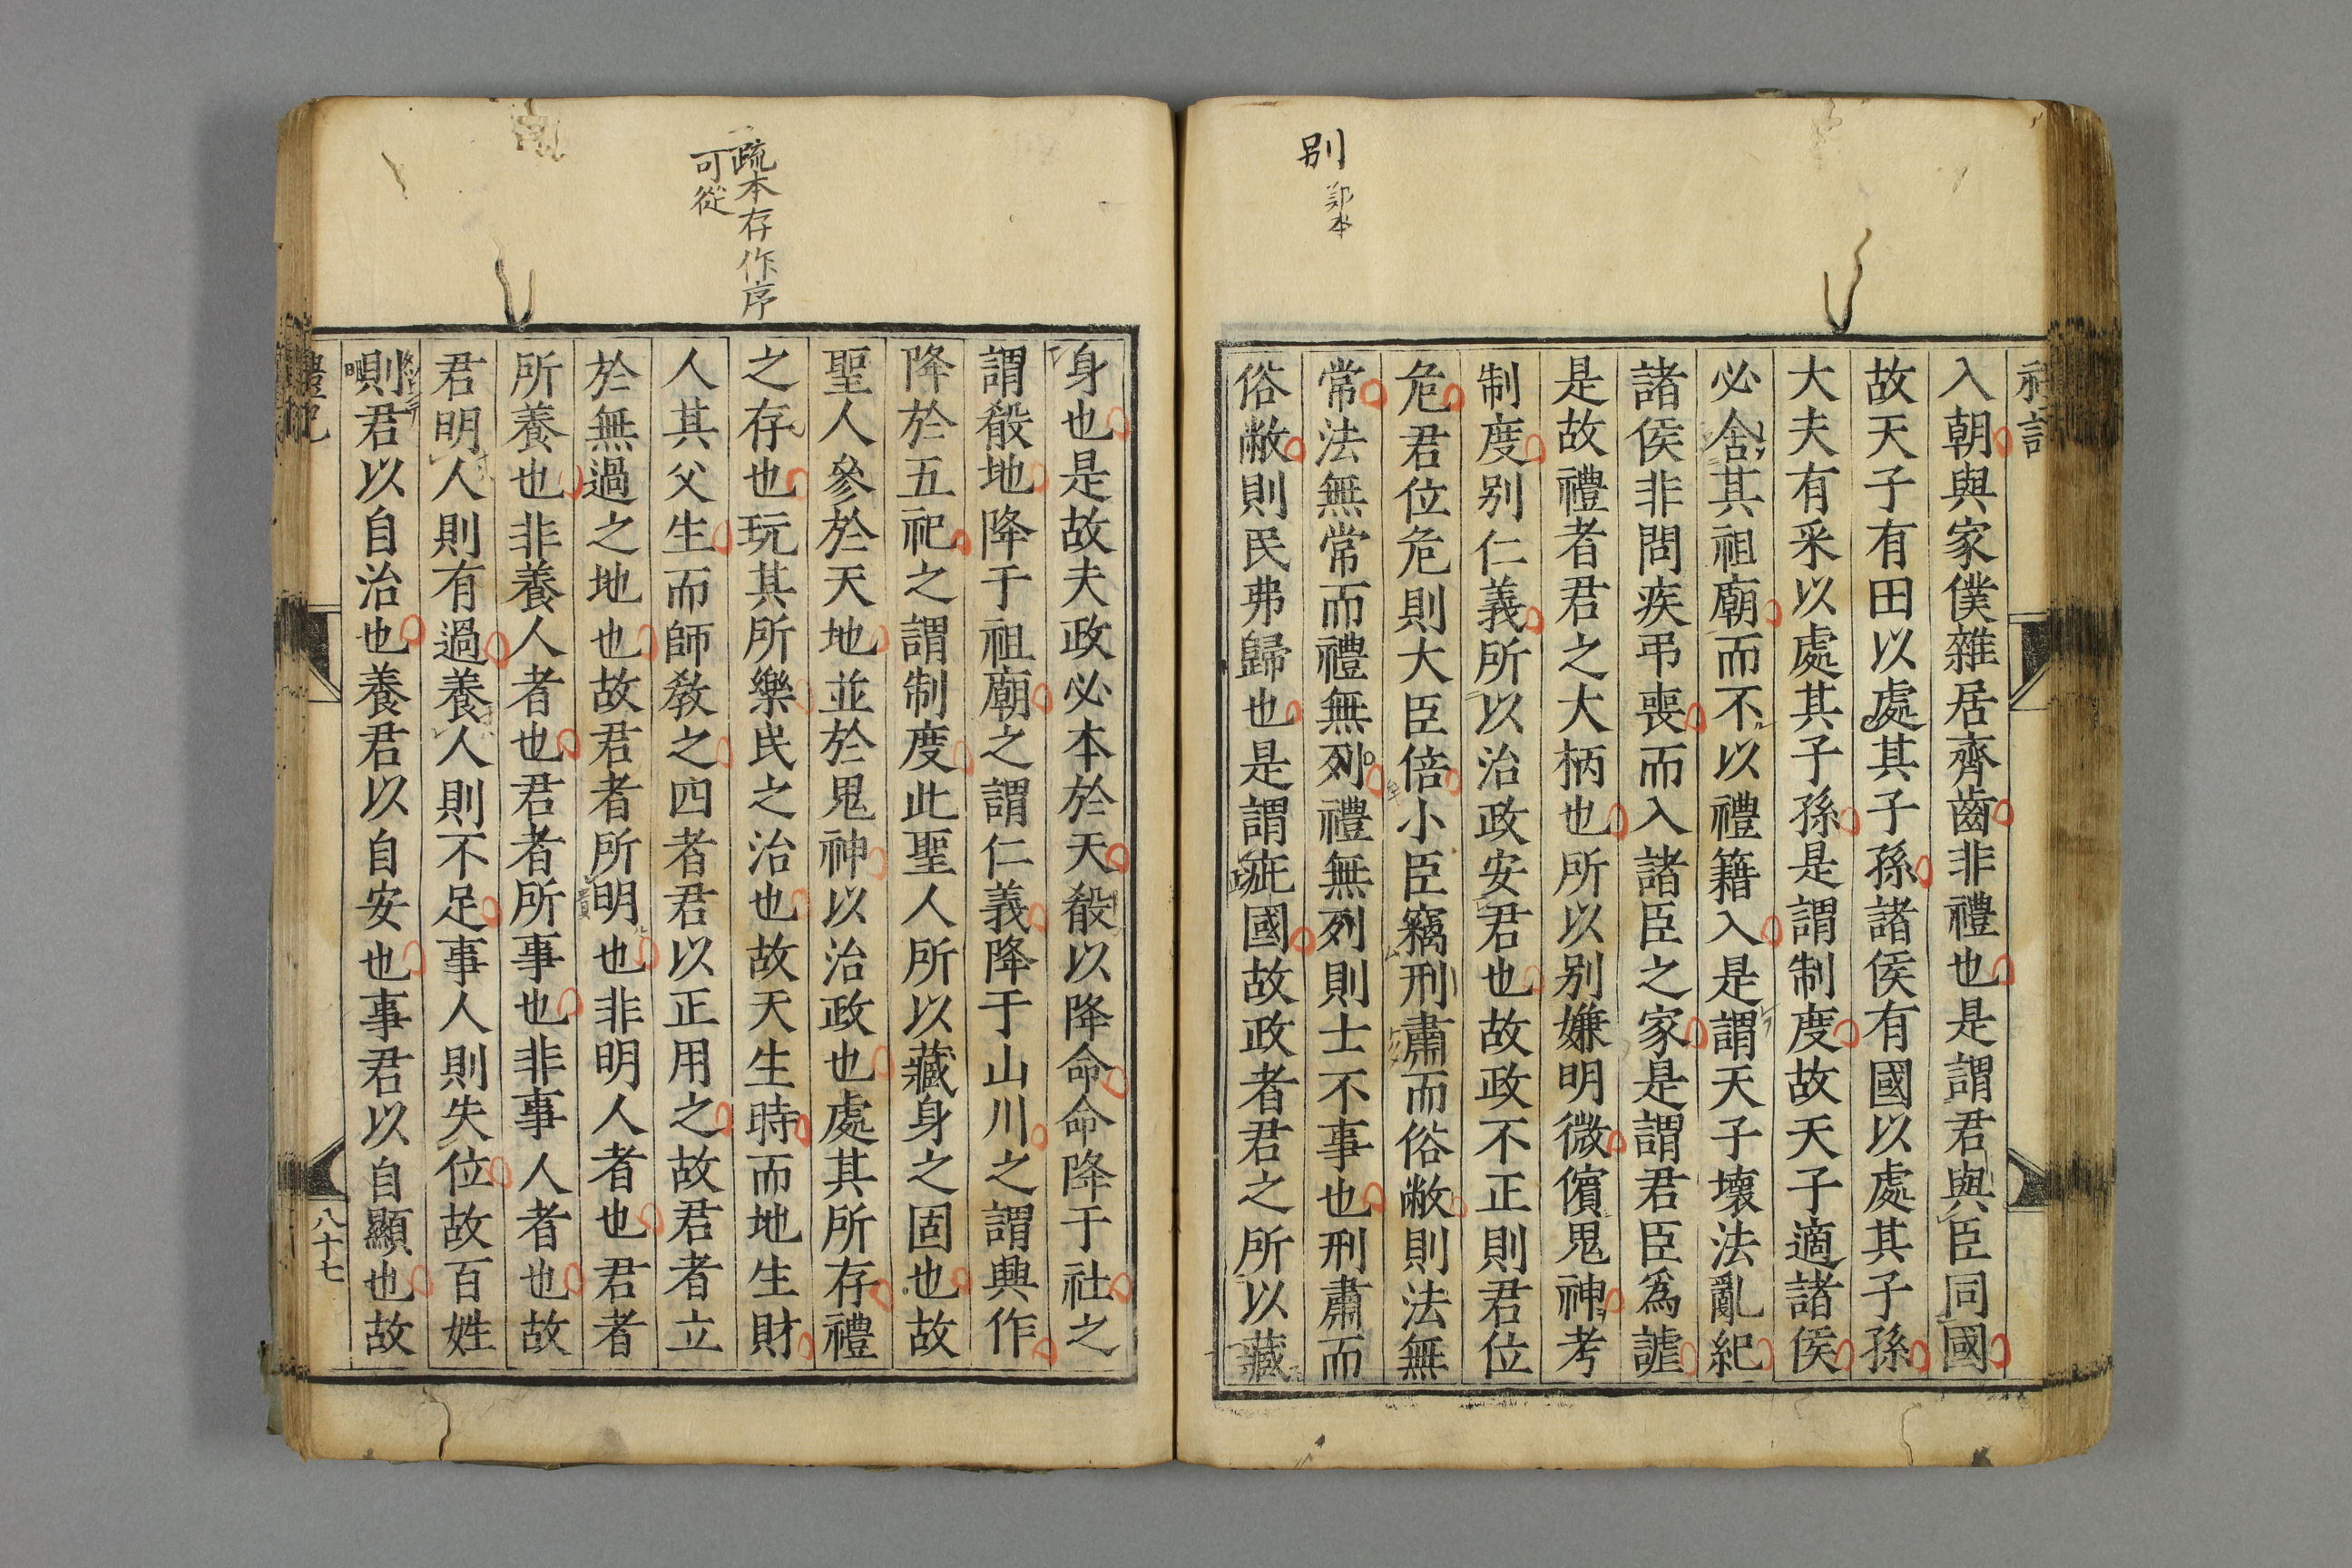 別
鄭本
禮記
入朝與家僕雜居齊齒非禮也是謂君與臣同國
故天子有田以處其子孫諸侯有國以處其子孫
大夫有采以處其子孫是謂制度故天子適諸侯
必舍其祖廟而不以禮籍入是謂天子壞法亂紀
諸侯非問疾弔喪而入諸臣之家是謂君臣爲謔
是故禮者君之大柄也所以别嫌明微儐鬼神考
制度别仁義所以治政安君也故政不正則君位
危君位危則大臣倍小臣竊刑肅而俗敝則法無
常法無常而禮無列禮無列則士不事也刑肅而
俗敝則民弗歸也是謂疵國故政者君之所以藏
疏本存作序
可從
身也是故夫政必本於天殽以降命命降于社之
謂殽地降于祖廟之謂仁義降于山川之謂興作
降於五祀之謂制度此聖人所以藏身之固也故
聖人參於天地並於鬼神以治政也處其所存禮
之存也玩其所樂民之治也故天生時而地生財
人其父生而師教之四者君以正用之故君者立
於無過之地也故君者所明也非明人者也君者
所養也非養人者也君者所事也非事人者也故
君明人則有過養人則不足事人則失位故百姓
則君以自治也養君以自安也事君以自顯也故
禮記
八十七